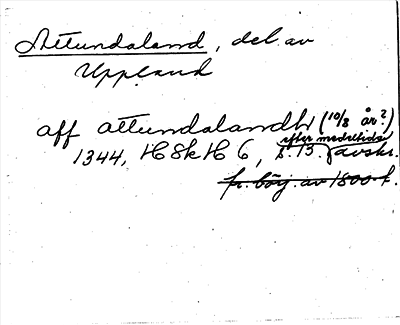 Attundaland, del av
Uppland
aff attundalandh (10/8 år?)
efter medeltida
1344, HSkH 6, s. 13. avskr.
fr. börj. av 1800-t.